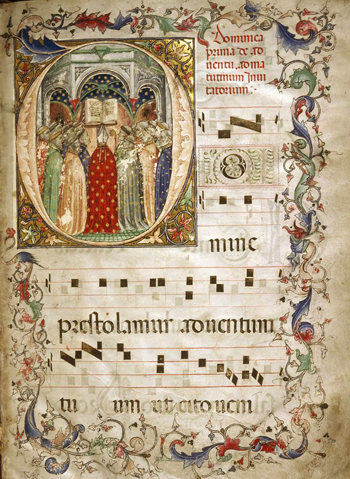 Dominica
prima de ad
uentu ad ma
tutinum Inui
tatorium
mine
prestolamur aduentum
tu um ut cito ueni